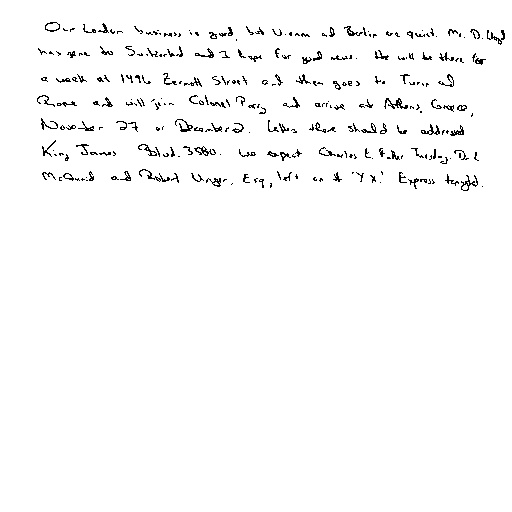 Our London business is good, but Vienna and Berlin are quiet. Mr. D. Lloyd
has gone to Switzerland and I hope for good news. He will be there for
a week at 1496 Zermott Street and then goes to Turin and
Rome and will join Colonel Parry and arrive at Athens, Greece,
November 27 or December 2. Letters there should be addressed
King James Blvd. 3580. We expect Charles E. Fuller Tuesday. Dr. L
McQuaid and Robert Unger, Esq., left on the 'Y.X.' Express tonight.